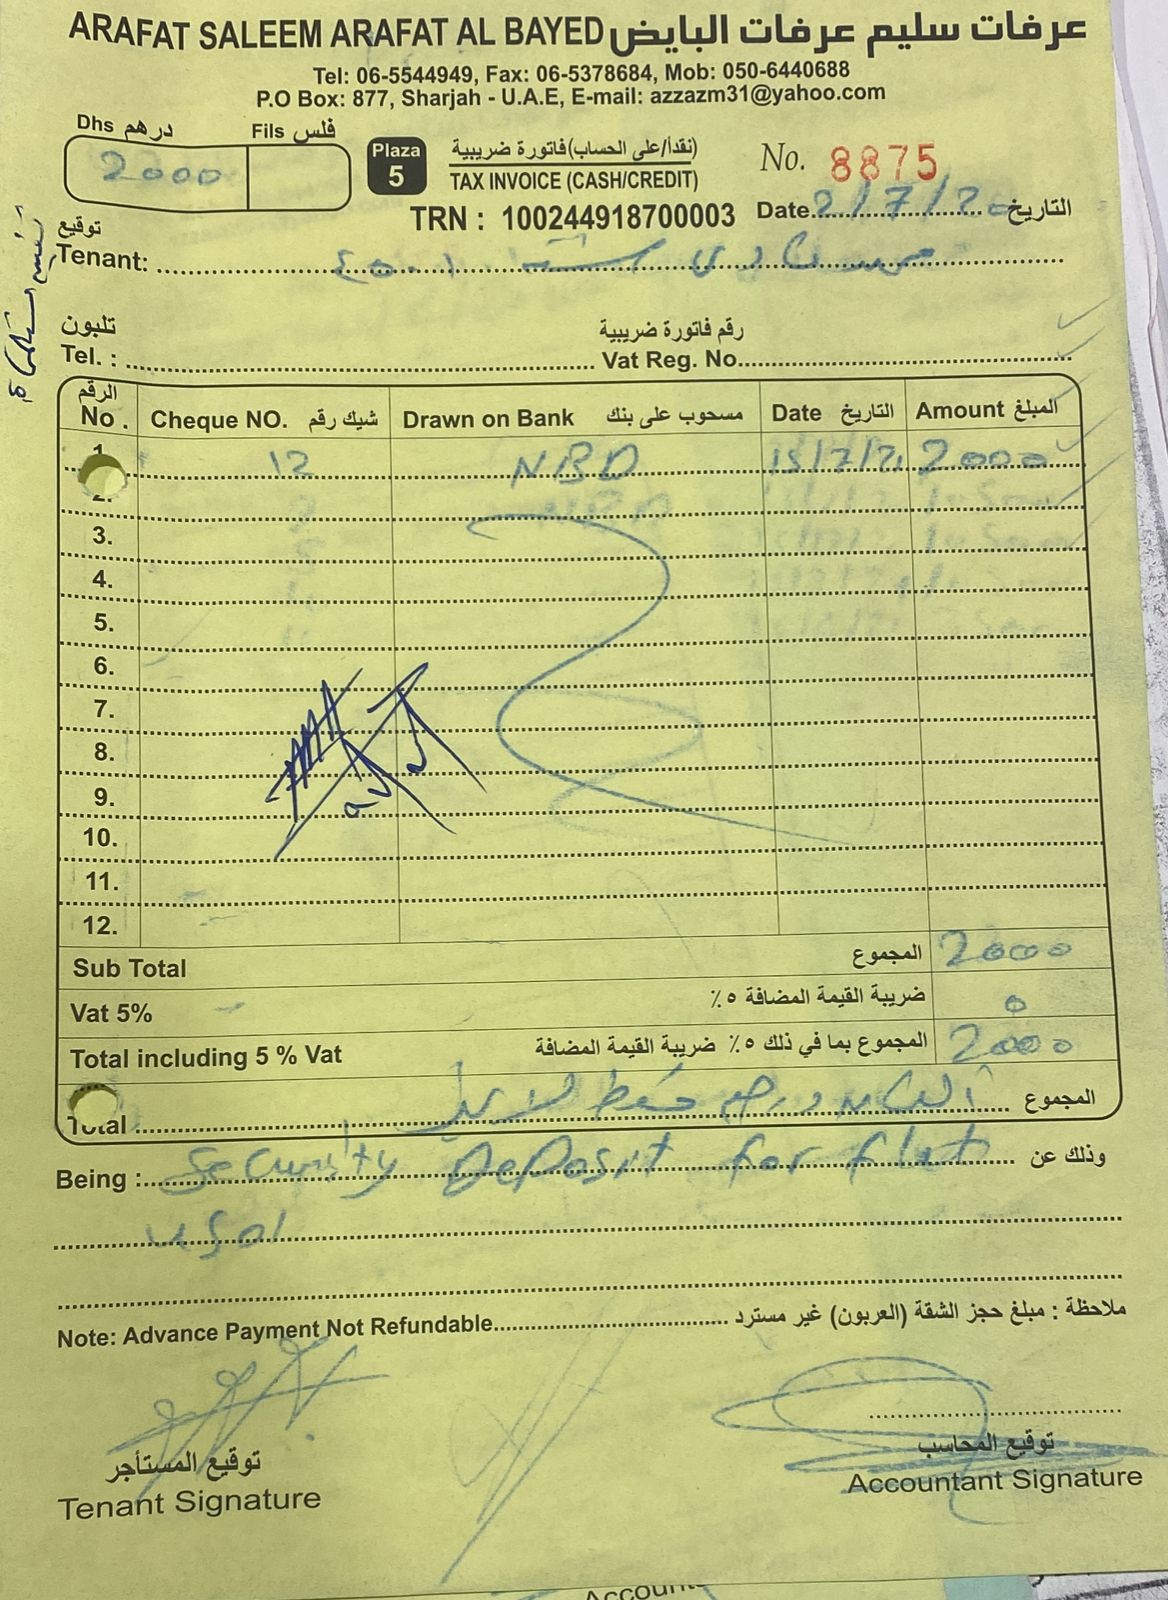 ARAFAT SALEEM ARAFAT AL BAYED عرفات سليم عرفات البايض
Tel: 06-5544949, Fax: 06-5378684, Mob: 050-6440688
P.O Box: 877, Sharjah - U.A.E, E-mail: azzazm31@yahoo.com
Dhs درهم Fils فلس
2000
Plaza 5
(نقداً/على الحساب) فاتورة ضريبية
TAX INVOICE (CASH/CREDIT)
No. 8875
TRN : 100244918700003 Date 2/7/2 التاريخ
توقيع
Tenant:
تلبون رقم فاتورة ضريبية
Tel. : Vat Reg. No.
الرقم
No . Cheque NO. شيك رقم Drawn on Bank مسحوب على بنك Date التاريخ Amount المبلغ
1. 12 NBD 15/7/21 2000
2.
3.
4.
5.
6.
7.
8.
9.
10.
11.
12.
Sub Total المجموع 2000
Vat 5% - ضريبة القيمة المضافة ٥٪ 0
Total including 5 % Vat المجموع بما في ذلك ٥٪ ضريبة القيمة المضافة 2000
Total درهم فقط لا غير المجموع
Being : Security Deposit for flat وذلك عن
Note: Advance Payment Not Refundable ملاحظة : مبلغ حجز الشقة (العربون) غير مسترد
توقيع المستأجر توقيع المحاسب
Tenant Signature Accountant Signature